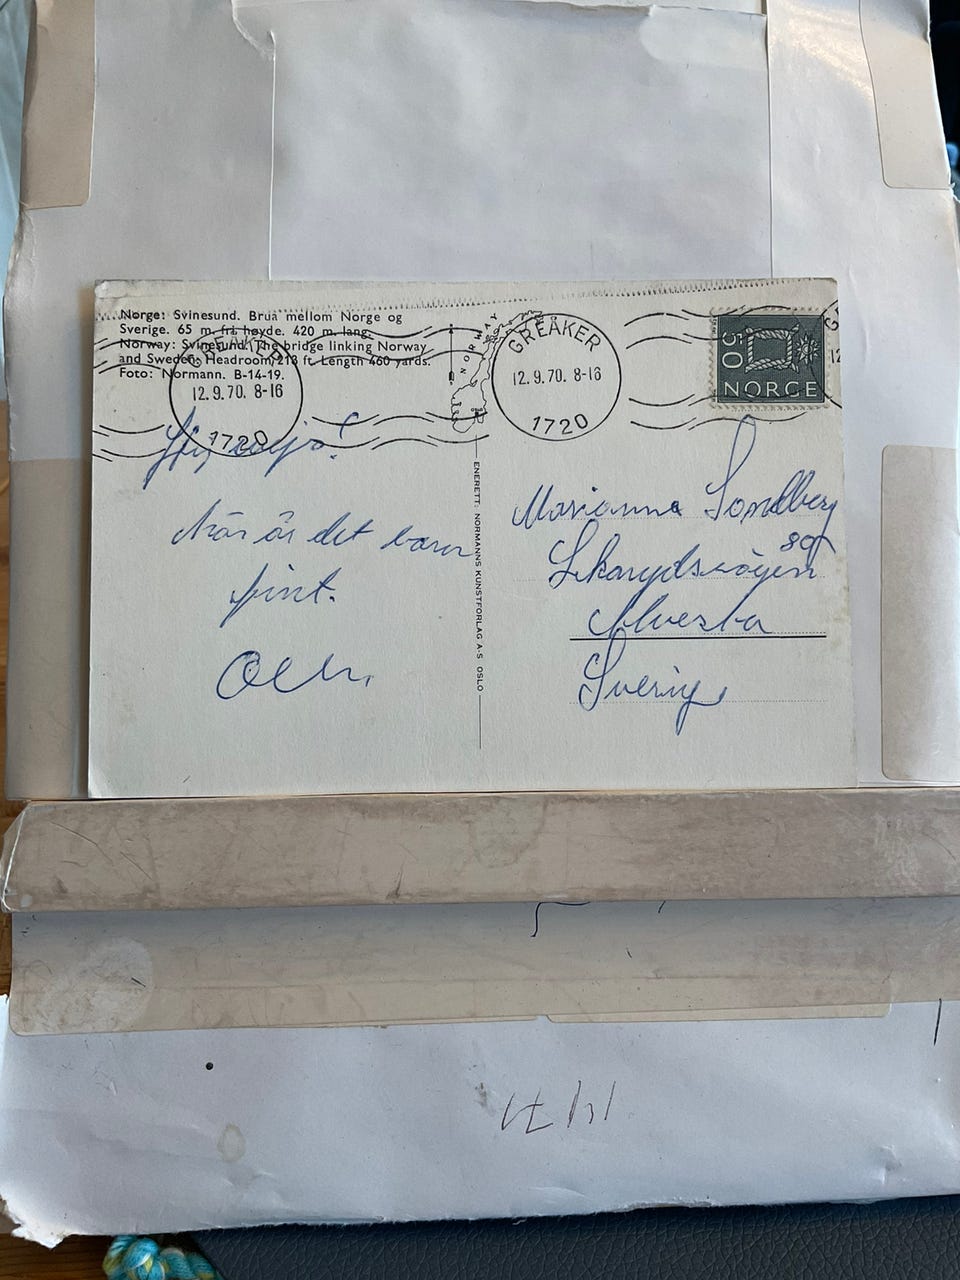 Norge: Svinesund. Brua mellom Norge og
Sverige. 65 m fri høyde. 420 m. lang.
Norway: Svinesund. The bridge linking Norway
and Sweden. Headroom 213 ft. Length 460 yards.
Foto: Normann. B-14-19.
NORWAY
GREAKER
12.9.70. 8-16
1720
GREAKER
12.9.70. 8-16
1720
50
NORGE
G
12
Hej
Här är det bara
fint.
ENERETT: NORMANNS KUNSTFORLAG A·S OSLO
Marianne Sandberg
Skarydsvägen
Alvesta
Sverige